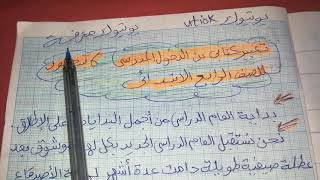 يوتيوب utiok يوتيوب
تعبير كتابي عن الدخول المدرسي
للصف الرابع الابتدائي
بداية العام الدراسي من أجمل البدايات على الإطلاق
نحن نستقبل العام الدراسي الجديد بكل لهفة وشوق بعد
عطلة صيفية طويلة دامت عدة أشهر الأصدقاء